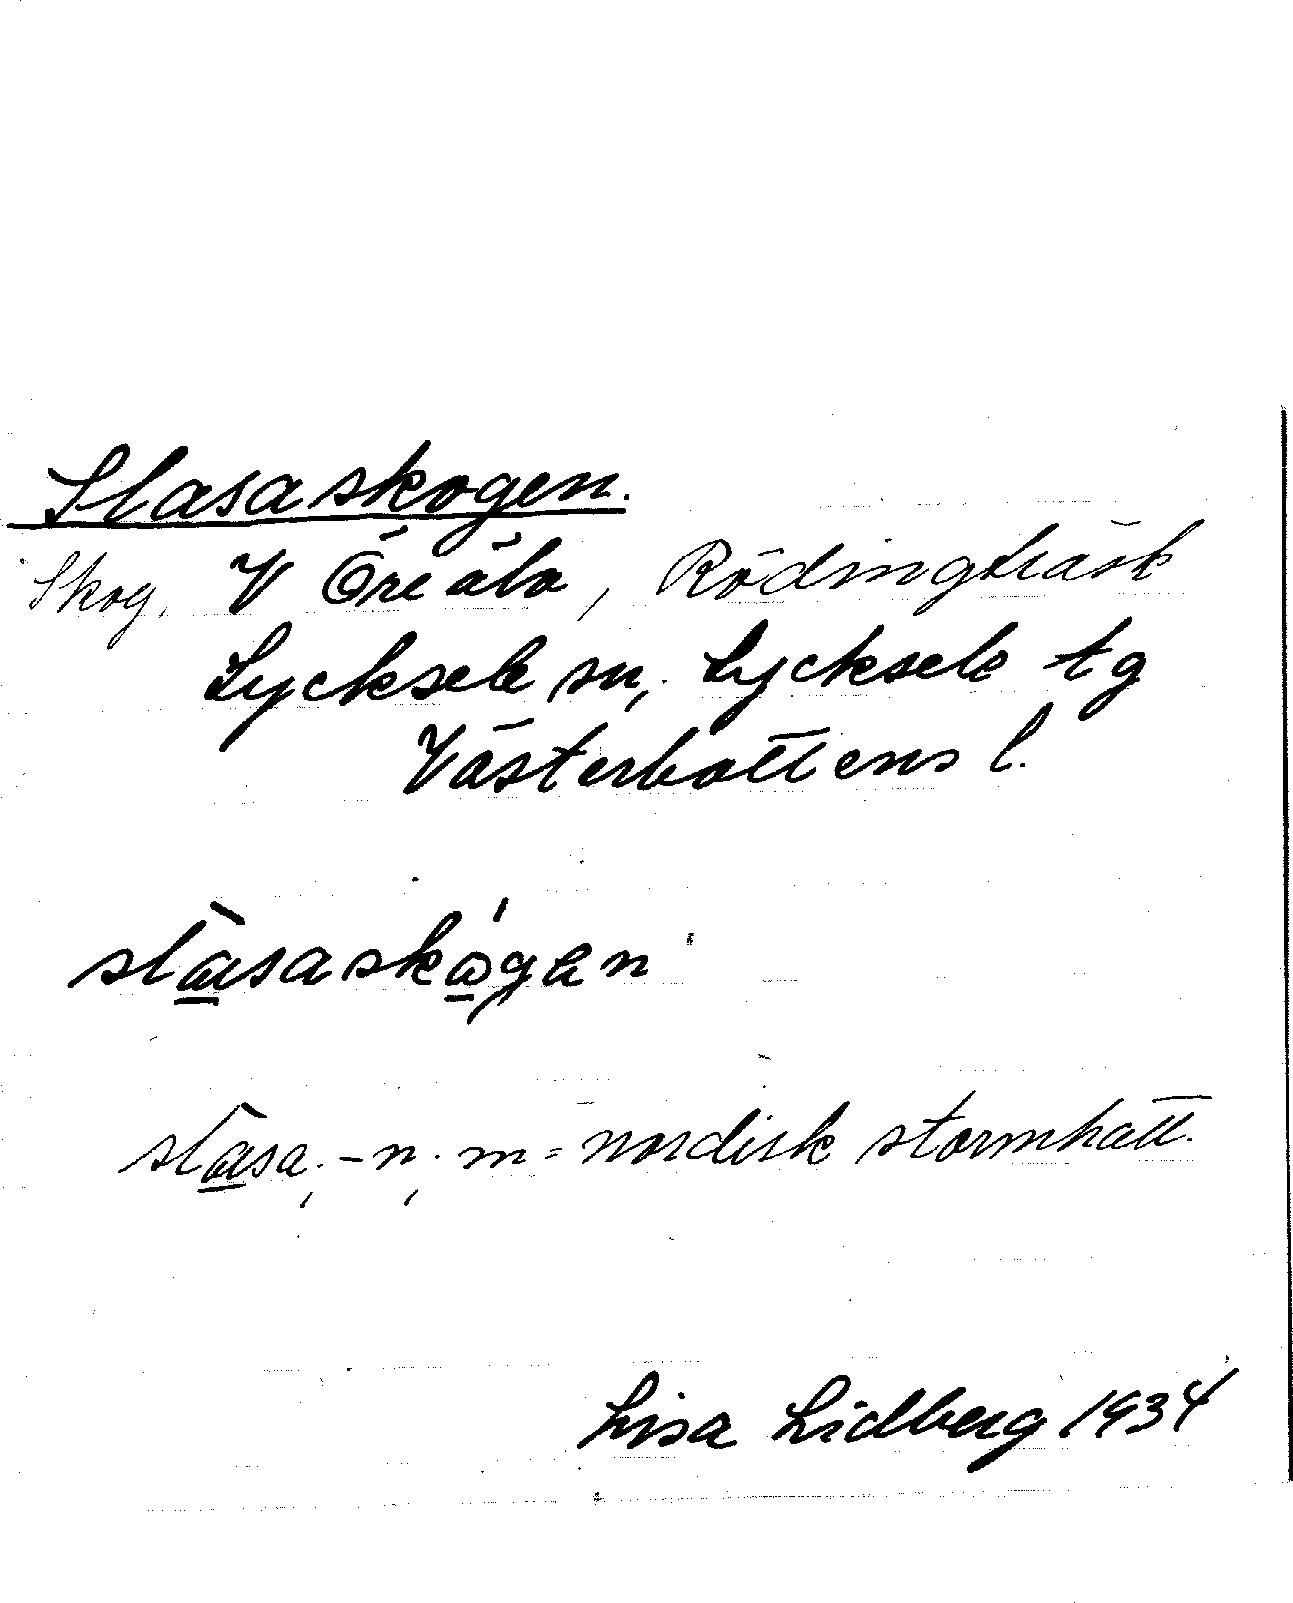 Slasaskogen.
Skog. V Öre älv, Rödingträsk
Lycksele sn, Lycksele tg
Västerbottens l.
slàsaskó̱gan
slàsa. -n. m = nordisk stormhatt.
Lisa Lidberg 1934